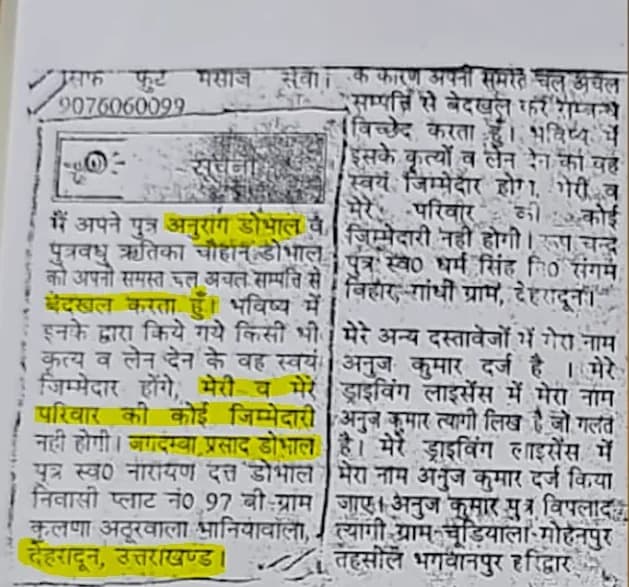 सिर्फ फुट मसाज सेवा।
9076060099
सूचना
मैं अपने पुत्र अनुराग डोभाल व
पुत्रवधु ऋतिका चौहान डोभाल
को अपनी समस्त चल अचल सम्पति से
बेदखल करता हूँ। भविष्य में
इनके द्वारा किये गये किसी भी
कृत्य व लेन देन के वह स्वयं
जिम्मेदार होंगे, मेरी व मेरे
परिवार की कोई जिम्मेदारी
नही होगी। जगदम्बा प्रसाद डोभाल
पुत्र स्व0 नारायण दत्त डोभाल
निवासी प्लाट नं0 97 बी-ग्राम
कलणा अठूरवाला भानियावाला,
देहरादून, उत्तराखण्ड।
के कारण अपनी समस्त चल अचल
सम्पत्ति से बेदखल कर सम्बन्ध
विच्छेद करता हूँ। भविष्य में
इसके कृत्यों व लेन देन का वह
स्वयं जिम्मेदार होगा, मेरी व
मेरे परिवार की कोई
जिम्मेदारी नही होगी। रूप चन्द
पुत्र स्व0 धर्म सिंह नि0 संगम
विहार, गांधी ग्राम, देहरादून।
मेरे अन्य दस्तावेजों में मेरा नाम
अनुज कुमार दर्ज है । मेरे
ड्राईविंग लाइसेंस में मेरा नाम
अनुज कुमार त्यागी लिख है जो गलत
है। मेरे ड्राईविंग लाइसेंस में
मेरा नाम अनुज कुमार दर्ज किया
जाए। अनुज कुमार पुत्र विपलाद
त्यागी ग्राम-चुडियाला-मोहनपुर
तहसील भगवानपुर हरिद्वार